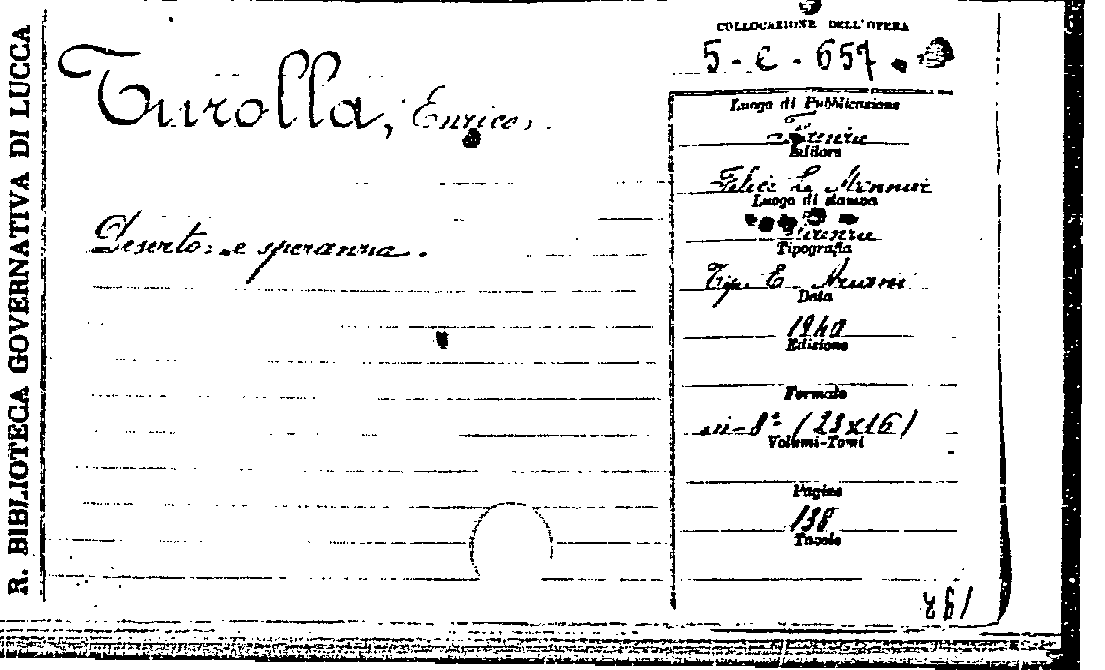 R. BIBLIOTECA GOVERNATIVA DI LUCCA
Turolla, Enrico.
Deserto e speranza.
COLLOCAZIONE DELL'OPERA
5-C-657.
Luogo di Pubblicazione
Firenze
Editore
Felice Le Monnier
Luogo di stampa
Firenze
Tipografia
Tip. E. Ariani
Data
1940
Edizione
Formato
in-8° (23x16)
Volumi-Tomi
Pagine
138
Tavole